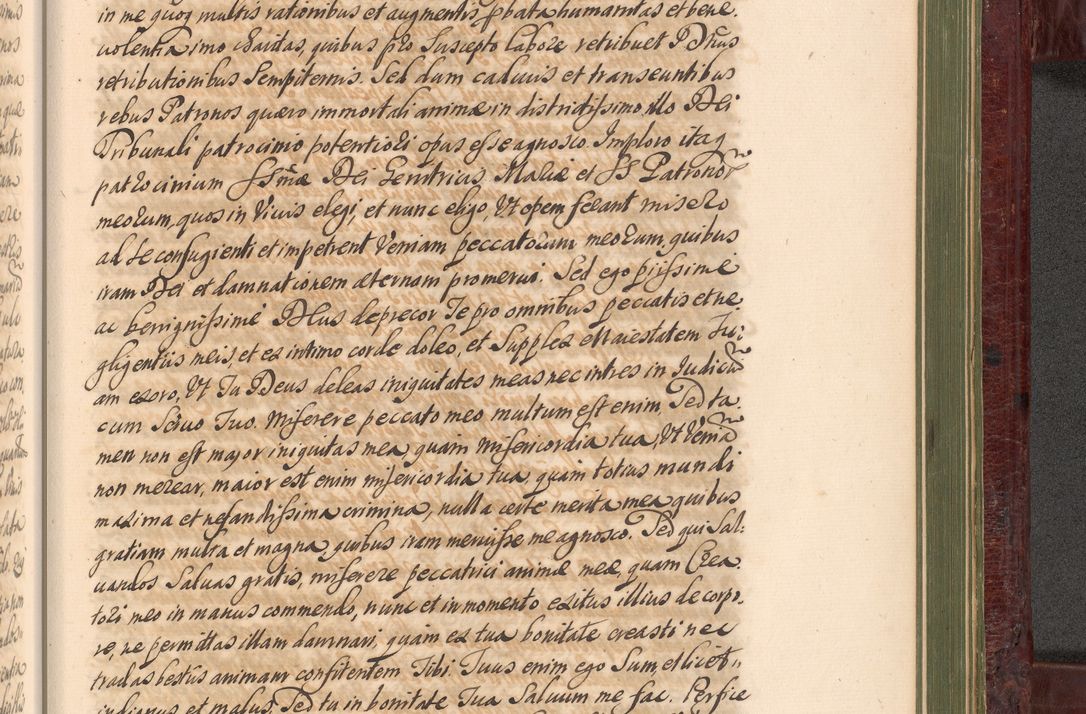 in me quoq multis rationibus et augmentis pbata humanitas et bene.
uolentia imo charitas, quibus pro Suscepto labore retribuet D Dnus
retributionibus Sempiternis. Sed dam caducis et transeuntibus
rebus Patronos quæro immortali animæ in districtissimo illo Dei
Tribunali patrocinio potentiori opus esse agnosco. Imploro itaq
patrocinium SSmæ Dei Genitricis Mariæ et SS Patronor
meorum, quos in Vivis elegi, et nunc eligo, Vt opem ferant misero
ad se confugienti et impetrent Veniam peccatorum meorum, quibus
iram Dei et damnationem æternam promerui. Sed ego pijssime
ac benignissime Deus deprecor Te pro omnibus peccatis et ne
gligentiis meis et ex intimo corde doleo, et Supplex Maiestatem Tu:
am exoro, Vt Tu Deus deleas iniquitates meas nec intres in Judiciu
cum Servo Tuo. Miserere peccato meo multum est enim Sed ta
men non est major iniquitas mea, quam Misericordia tua, Vt Venia
non merear, maior est enim misericordia tua, quam totius mundi
maxima et nefandissima crimina, nulla certe merita mea quibus
gratiam multa et magna, quibus iram meruisse me agnosco. Sed qui Sal:
uandos Saluas gratis, miserere peccatrici animæ meæ, quam Crea
tori meo in manus commendo, nunc et in momento exitus illius de corpo.
re, ne permittas illam damnari, quam ex tua bonitate creasti nec
tradas bestiis animam confitentem Tibi. Tuus enim ego Sum et licet
indignus et malus, Sed tu in bonitate Tua Saluum me fac. Perfice